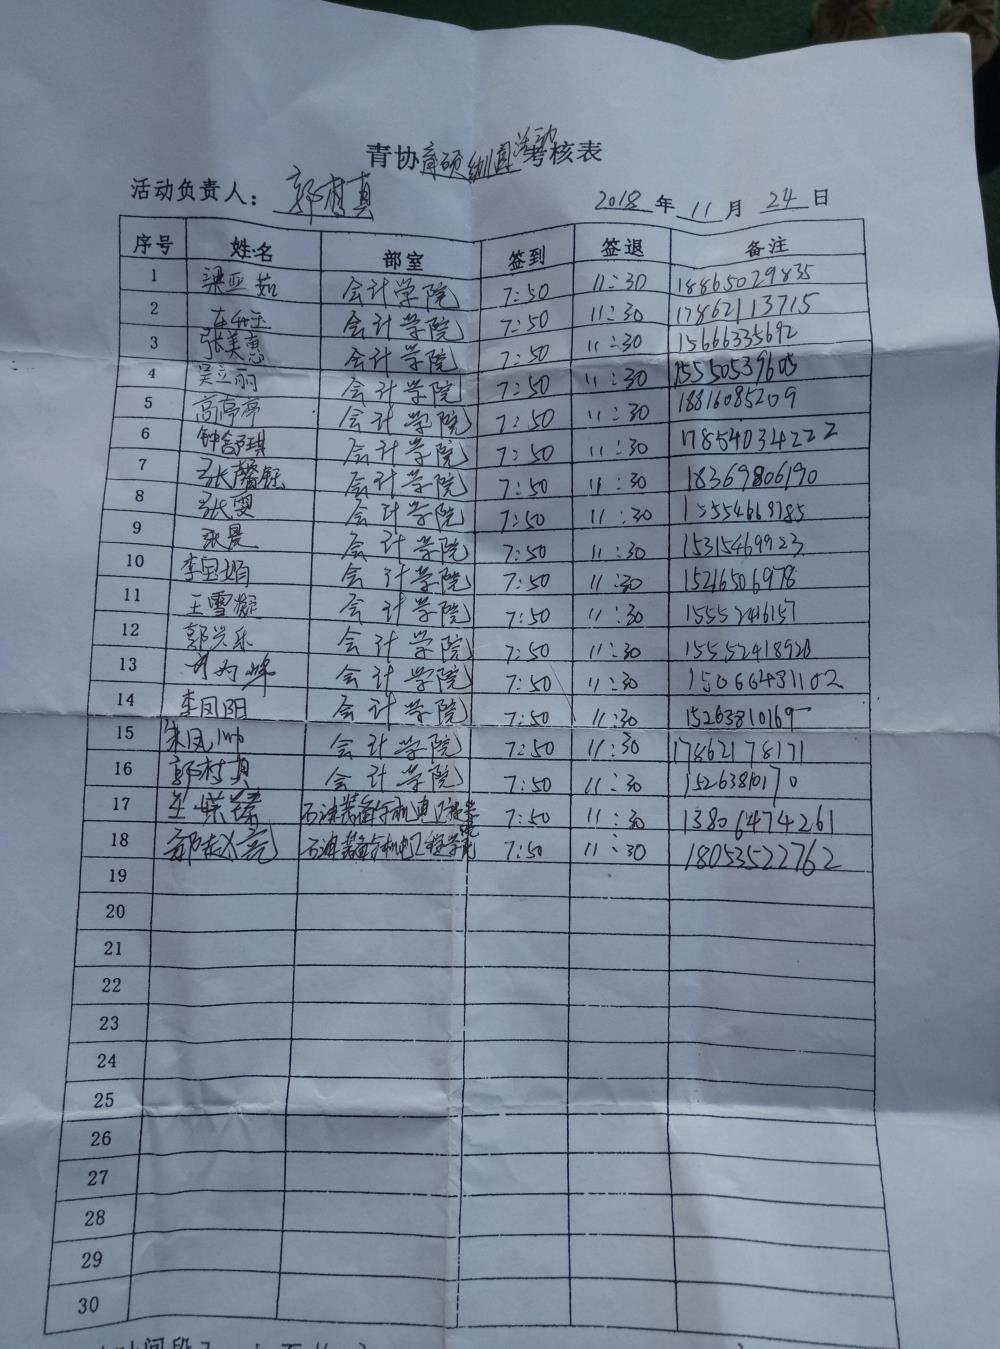 青协育硕幼儿园活动考核表
活动负责人：郭树真 2018年11月24日
序号 姓名 部室 签到 签退 备注
1 梁亚茹 会计学院 7:50 11:30 18865029835
2 会计学院 7:50 11:30 17862113715
3 张美惠 会计学院 7:50 11:30 15666335692
4 吴立丽 会计学院 7:50 11:30 15550539605
5 高亭亭 会计学院 7:50 11:30 18816085209
6 会计学院 7:50 11:30 17854034222
7 张馨钰 会计学院 7:50 11:30 18369806190
8 张雯 会计学院 7:50 11:30 15554669785
9 张晨 会计学院 7:50 11:30 15315469923
10 李昱娟 会计学院 7:50 11:30 15216506978
11 王雪凝 会计学院 7:50 11:30 15552416157
12 郭兴乐 会计学院 7:50 11:30 15552418920
13 会计学院 7:50 11:30 15066431102
14 李凤阳 会计学院 7:50 11:30 15263810169
15 会计学院 7:50 11:30 17862178171
16 郭树真 会计学院 7:50 11:30 15263810170
17 石油装备与机电工程学院 7:50 11:30 13806474261
18 石油装备与机电工程学院 7:50 11:30 18053522762
19
20
21
22
23
24
25
26
27
28
29
30